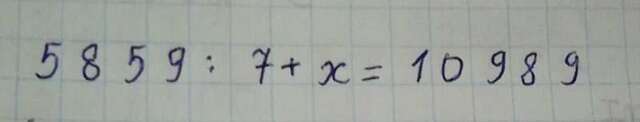 5859 : 7 + x = 10989